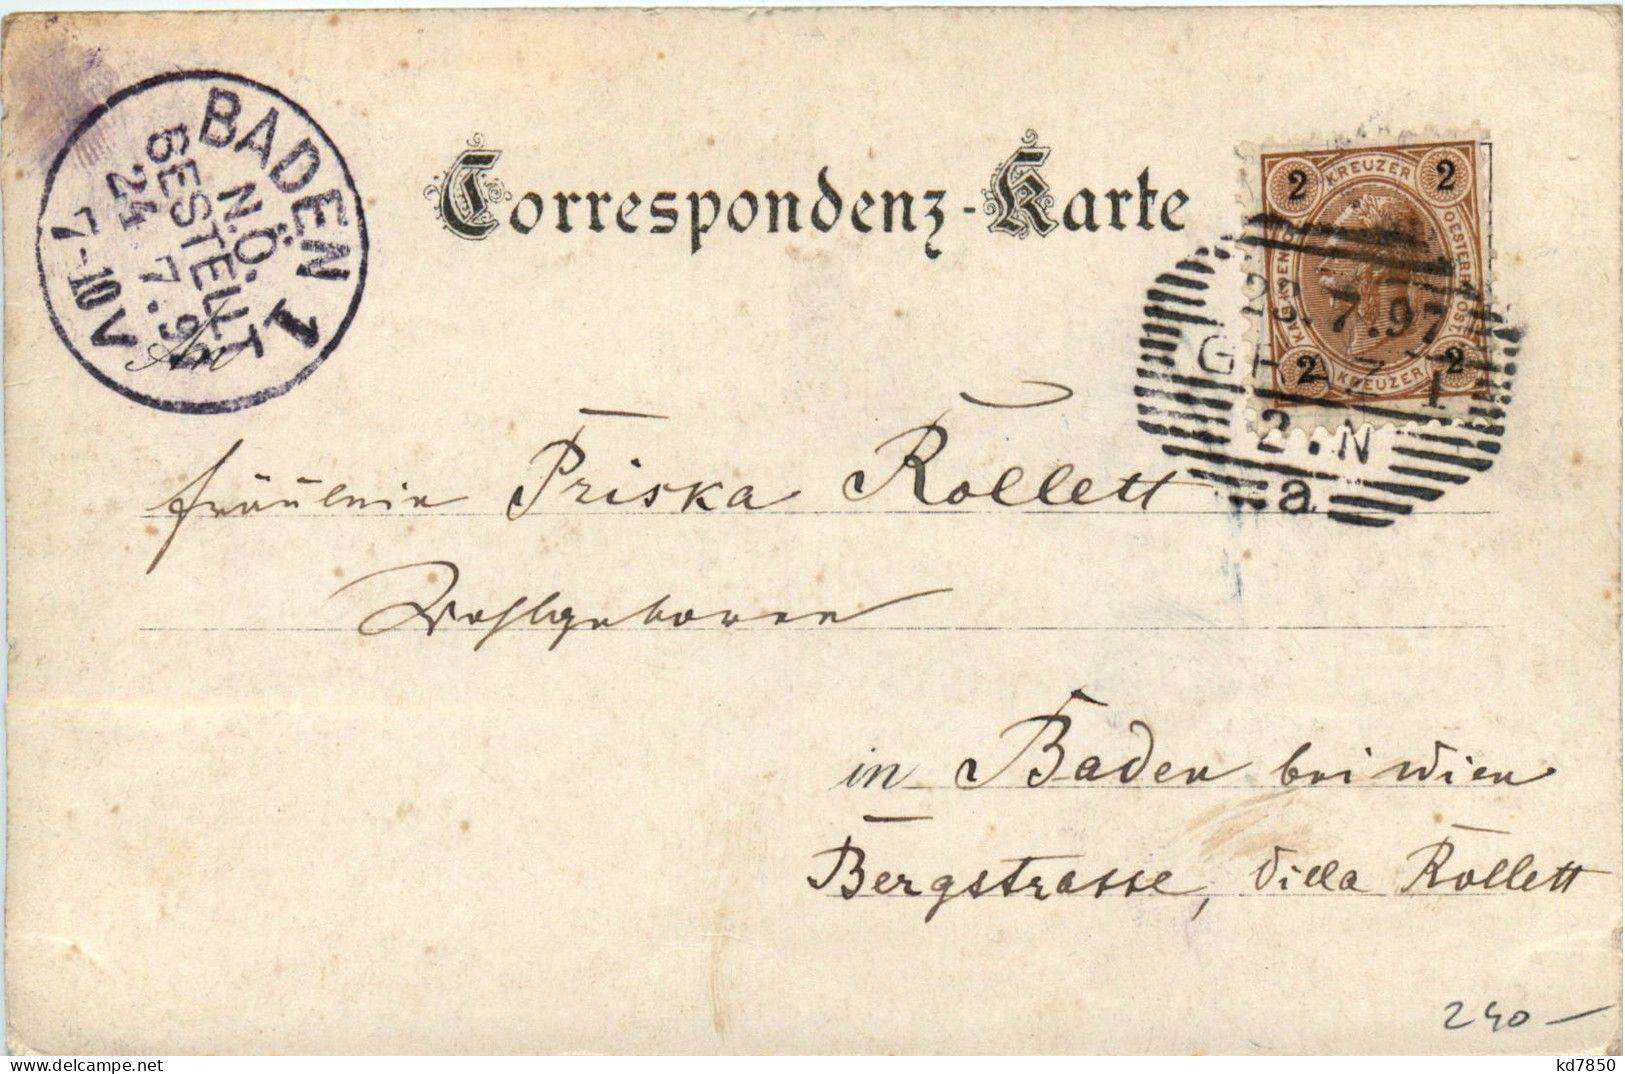 Correspondenz-Karte
BADEN 1
N.Ö.
BESTELLT
24 7. 9
7-10 V
An
2 KREUZER 2
KAIS. KOEN. OESTERR. POST.
2 KREUZER 2
23. 7. 97
1
2. N
a
Fräulein Priska Rollett
Wohlgeboren
in Baden bei Wien
Bergstrasse, Villa Rollett
240 —
kd7850